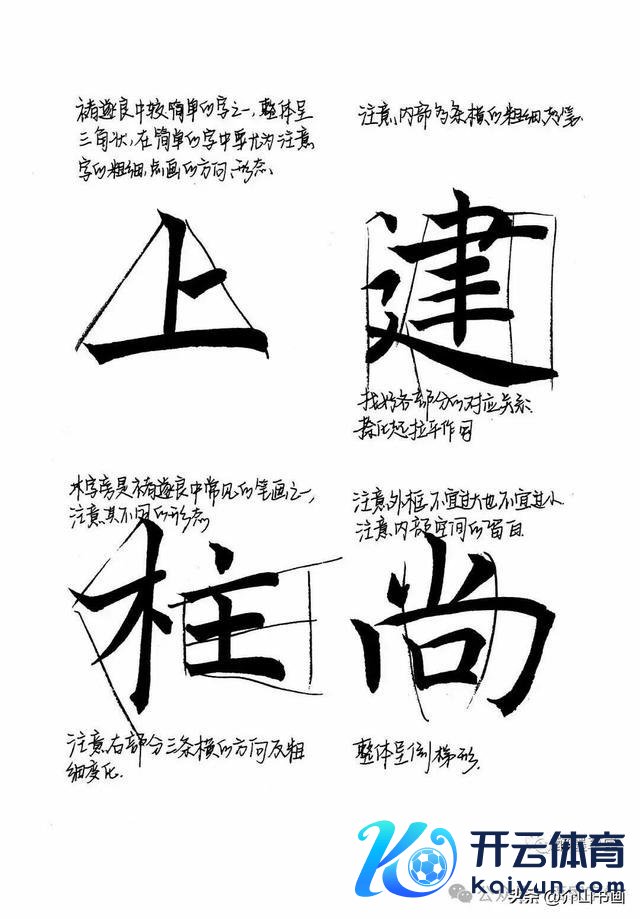 褚遂良中较简单的字之一,整体呈
三角状,在简单的字中要尤为注意
字的粗细,点画的方向、形态.
上
注意内部多条横的粗细
建
找好各部分的对应关系.
捺比起拉平作用
木字旁是褚遂良中常见的笔画之一,
注意其不同的形态
柱
注意右部分三条横的方向及粗
细变化.
注意外框不宜过大也不宜过小
注意内部空间的留白
尚
整体呈倒梯形.
开云体育
kaiyun.com
公众
头条@介山书画